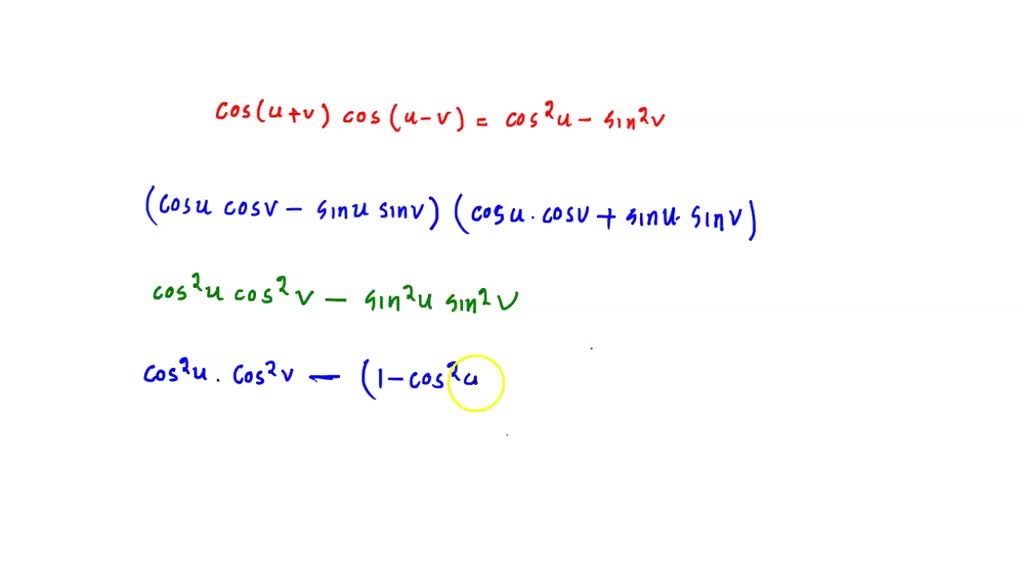 cos(u+v) cos(u-v) = cos²u - sin²v
(cosu cosv - sinu sinv) (cosu . cosv + sinu . sinv)
cos²u cos²v - sin²u sin²v
cos²u . cos²v - (1-cos²u